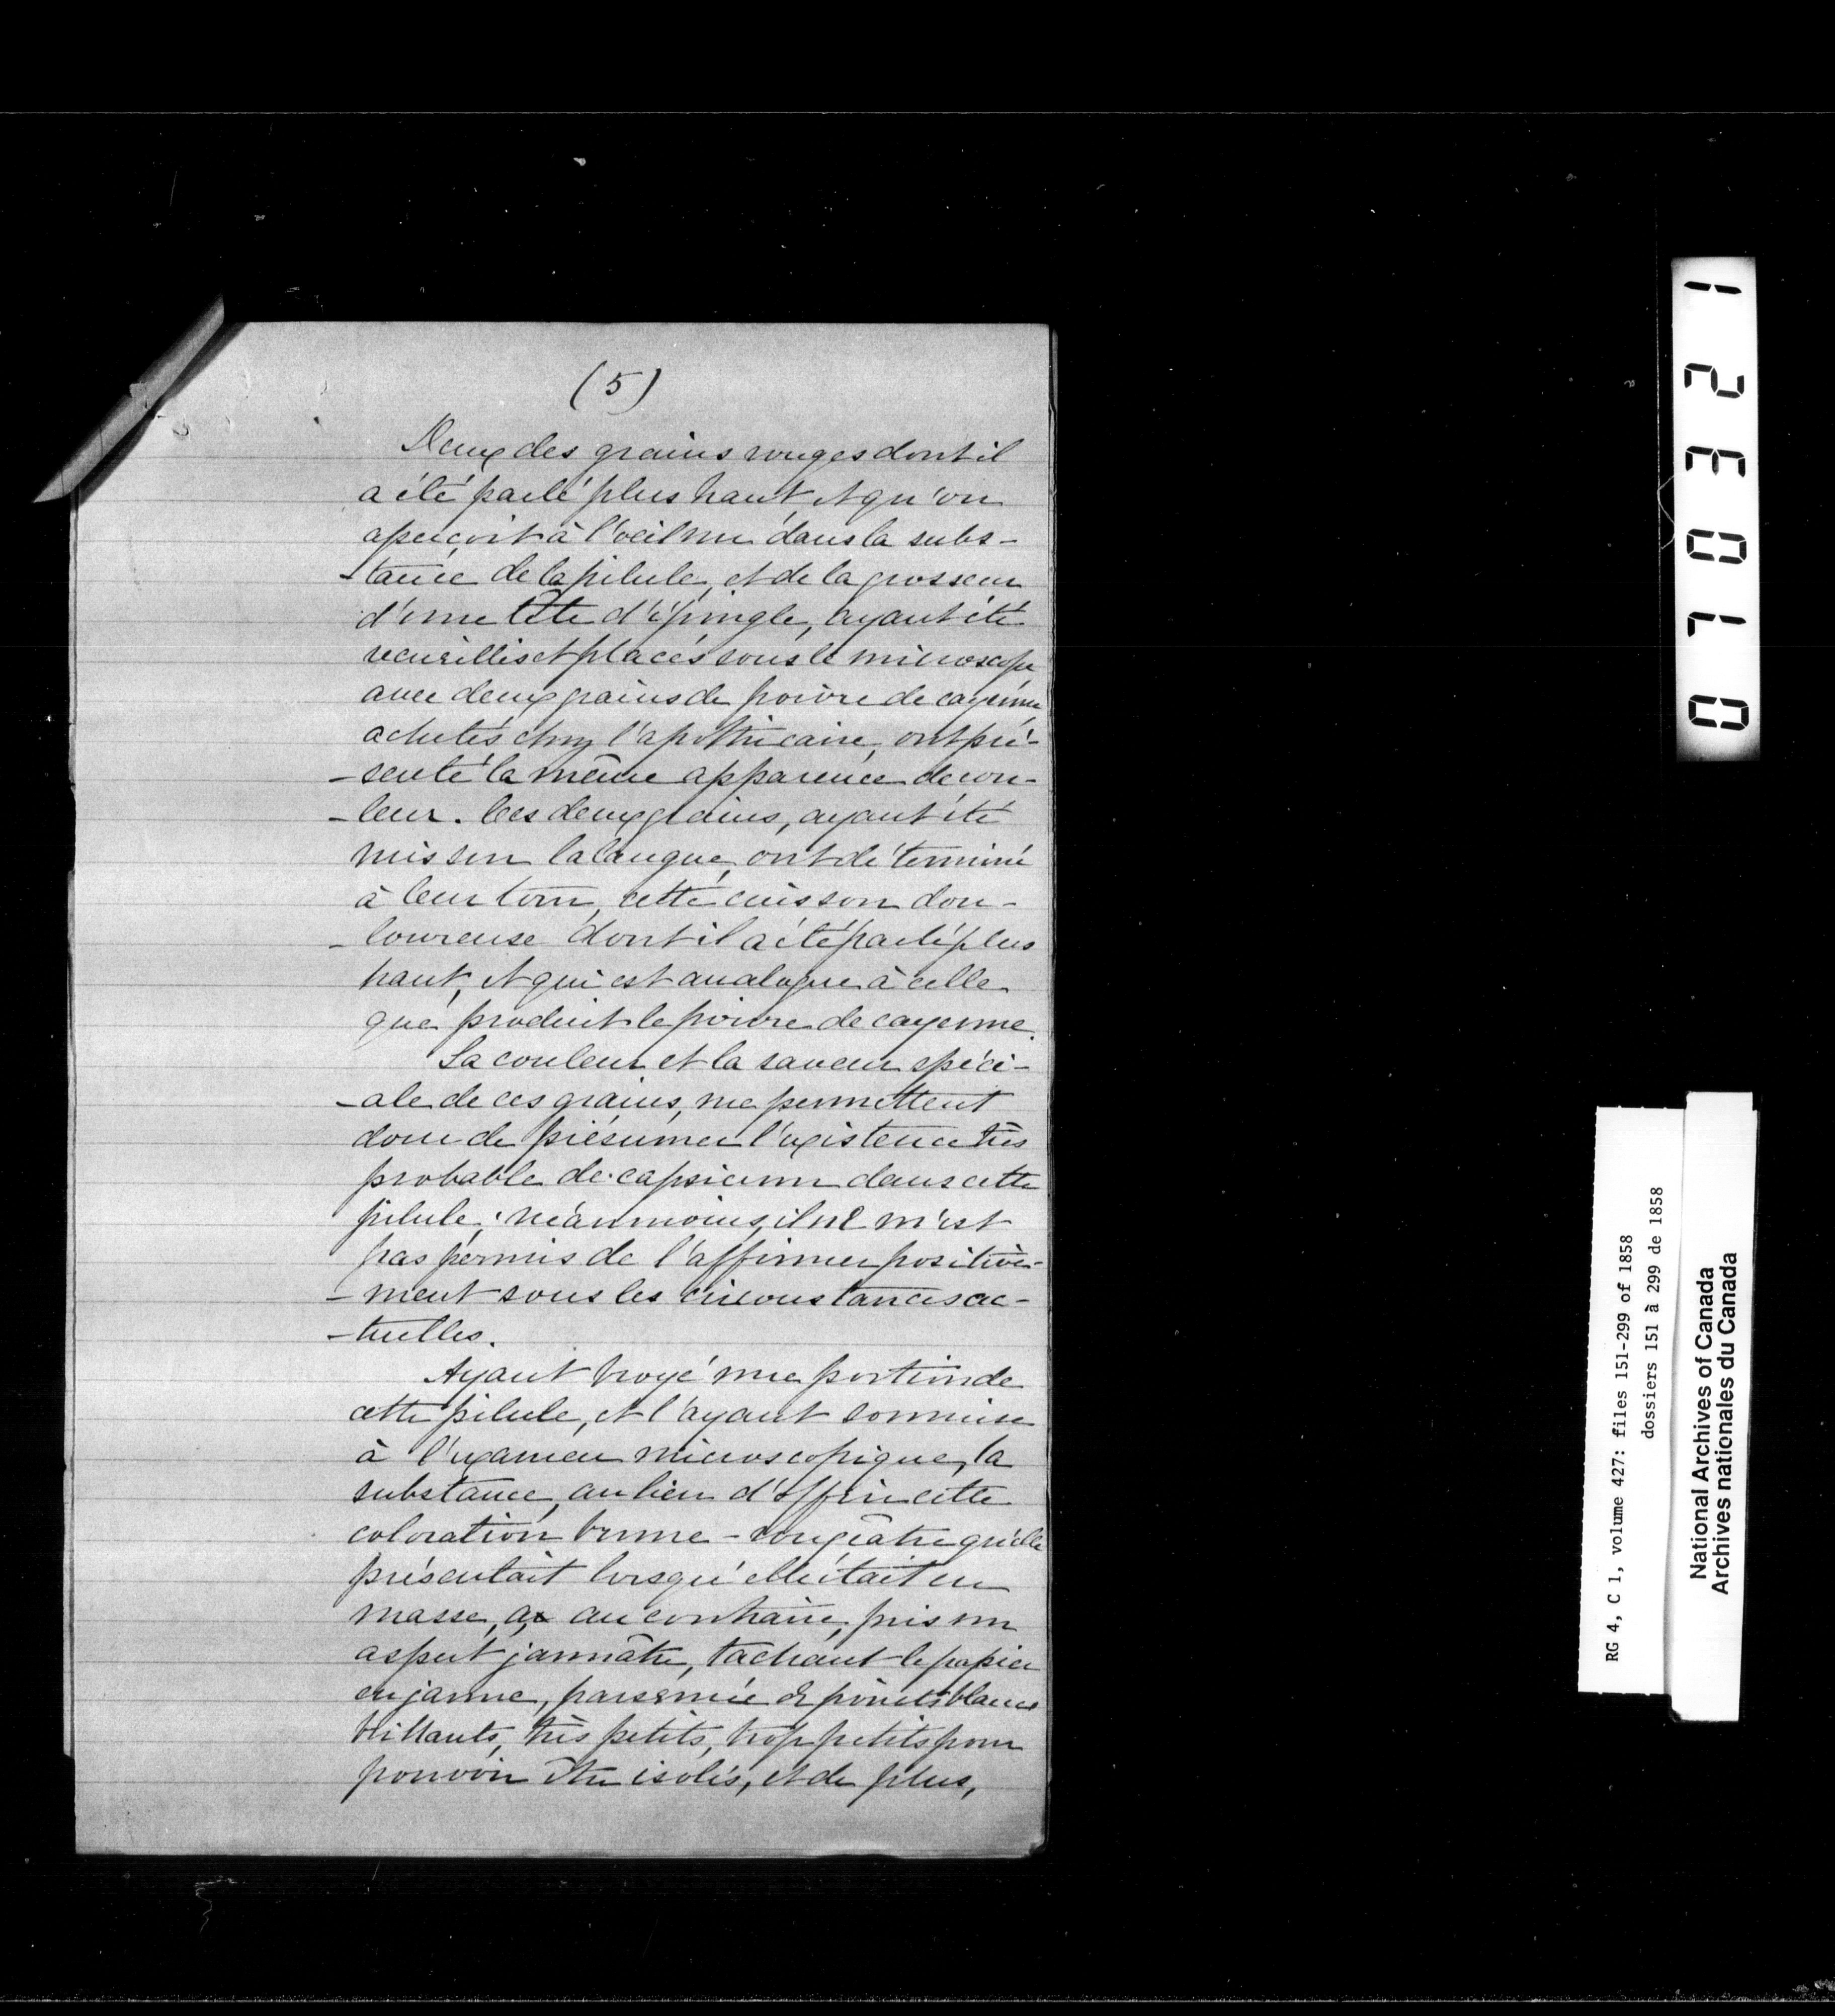 (5)
Deux des grains rouges dont il
a été parlé plus haut, et qu'on
aperçoit à l'œil nu dans la subs-
-tance de la pilule, et de la grosseur
d'une tête d'épingle, ayant été
recueillis et placés sous le microscope
avec deux grains de poivre de cayenne
achetés chez l'apothicaire, ont pré-
-senté la même apparence de cou-
-leur. Ces deux grains, ayant été
mis sur la langue, ont déterminé
à leur tour, cette cuisson dou-
-loureuse dont il a été parlé plus
haut, et qui est analogue à celle
que produit le poivre de cayenne.
La couleur et la saveur spéci-
-ale de ces grains, me permettent
donc de présumer l'existence très
probable de capsicum dans cette
pilule; néanmoins, il ne m'est
pas permis de l'affirmer positive-
-ment sous les circonstances ac-
-tuelles.
Ayant broyé une portion de
cette pilule, et l'ayant soumise
à l'examen microscopique, la
substance, au lieu d'offrir cette
coloration brune-rougeâtre qu'elle
présentait lorsqu'elle était en
masse, a, au contraire, pris un
aspect jaunâtre, tachant le papier
en jaune, parsemée de points blancs
brillants, très petits, trop petits pour
pouvoir être isolés, et de plus,
0 7 0 3 2 1
RG 4, C 1, volume 427: files 151-299 of 1858
dossiers 151 à 299 de 1858
National Archives of Canada
Archives nationales du Canada